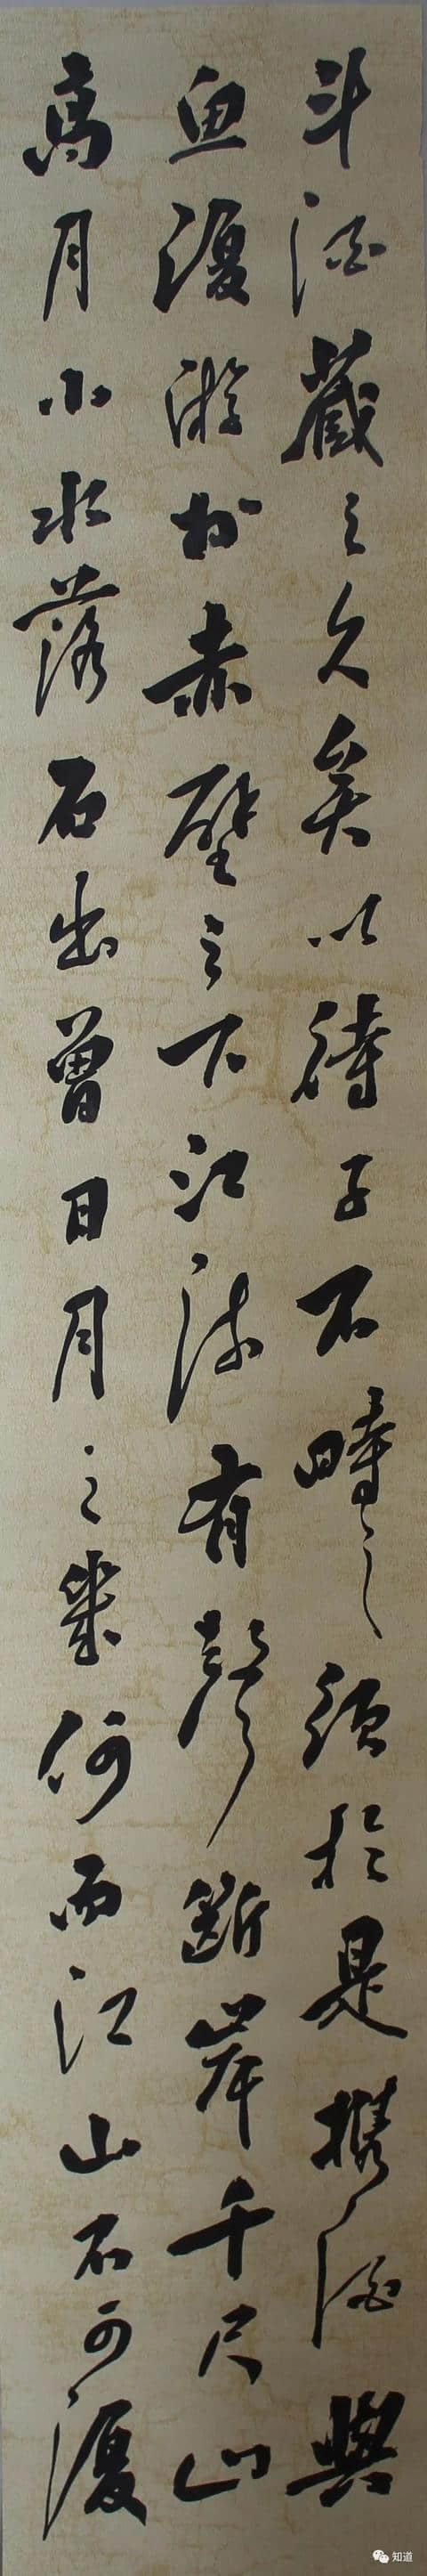 斗酒藏之久矣以待子不時之須於是攜酒與
魚復游於赤壁之下江流有聲斷岸千尺山
高月小水落石出曾日月之幾何而江山不可復
知道